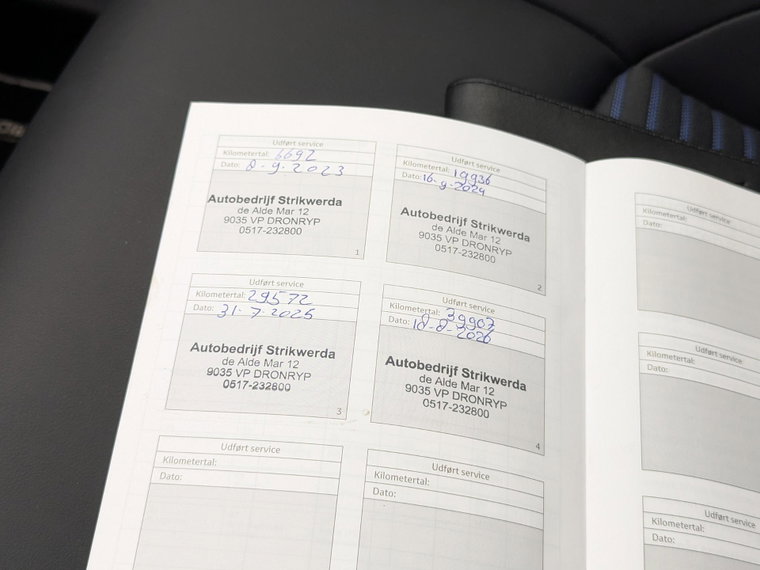 Udført service
Kilometertal: 6692
Dato: 8-9-2023
Autobedrijf Strikwerda
de Alde Mar 12
9035 VP DRONRYP
0517-232800
1
Udført service
Kilometertal: 19936
Dato: 16-9-2024
Autobedrijf Strikwerda
de Alde Mar 12
9035 VP DRONRYP
0517-232800
2
Udført service
Kilometertal: 29572
Dato: 31-7-2025
Autobedrijf Strikwerda
de Alde Mar 12
9035 VP DRONRYP
0517-232800
3
Udført service
Kilometertal: 39907
Dato: 18-8-2026
Autobedrijf Strikwerda
de Alde Mar 12
9035 VP DRONRYP
0517-232800
4
Udført service
Kilometertal:
Dato:
Udført service
Kilometertal:
Dato:
Udført service
Kilometertal:
Dato:
Udført service
Kilometertal:
Dato:
Udført service
Kilometertal:
Dato: